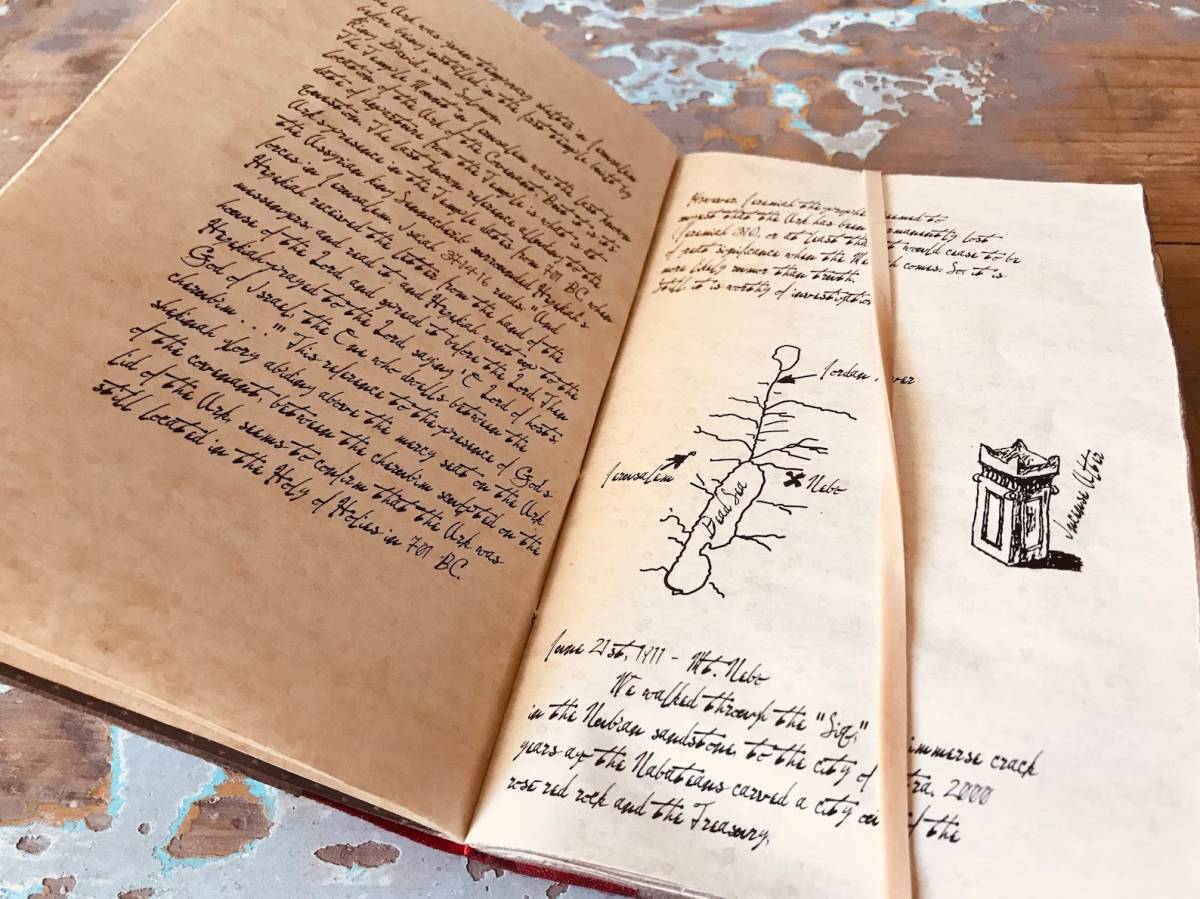 Ark was given temporary shelter in Jerusalem
before being installed in the first temple built by
King David's son Solomon.
The Temple Mount in Jerusalem was the last known
location of the Ark of the Covenant. Date of its
from the Temple is what is at
question. The last known reference alluding to the
Ark's presence in the Temple dates from 701 BC, when
the Assyrian king Sennacherib surrounded Hezekiah's
forces in Jerusalem. Isaiah 37:14-16 reads: "And
Hezekiah received the letter from the hand of the
messengers, and read it; and Hezekiah went up to the
house of the Lord, and spread it before the Lord. Then
Hezekiah prayed to the Lord, saying: 'O Lord of hosts,
God of Israel, the One who dwells between the
cherubim . . .'" This reference to the presence of God's
shekinah glory abiding above the mercy seat on the Ark
of the covenant, between the cherubim sculpted on the
lid of the Ark, seems to confirm that the Ark was
still located in the Holy of Holies in 701 BC.
However, Jeremiah the prophet seemed to
suggest that the Ark has been permanently lost
(Jeremiah 3:16), or at least that it would cease to be
of great significance when the Me h comes. So it is
more likely rumor than truth.
Still it is worthy of investigation
Jordan ver
Jerusalem
Dead Sea
Nebo
Incense Altar
June 21st, 1911 - Mt. Nebo
We walked through the "Siq", immerse crack
in the Nubian sandstone, to the city of tra. 2000
years ago the Nabateans carved a city ou of the
rose red rock and the Treasury.